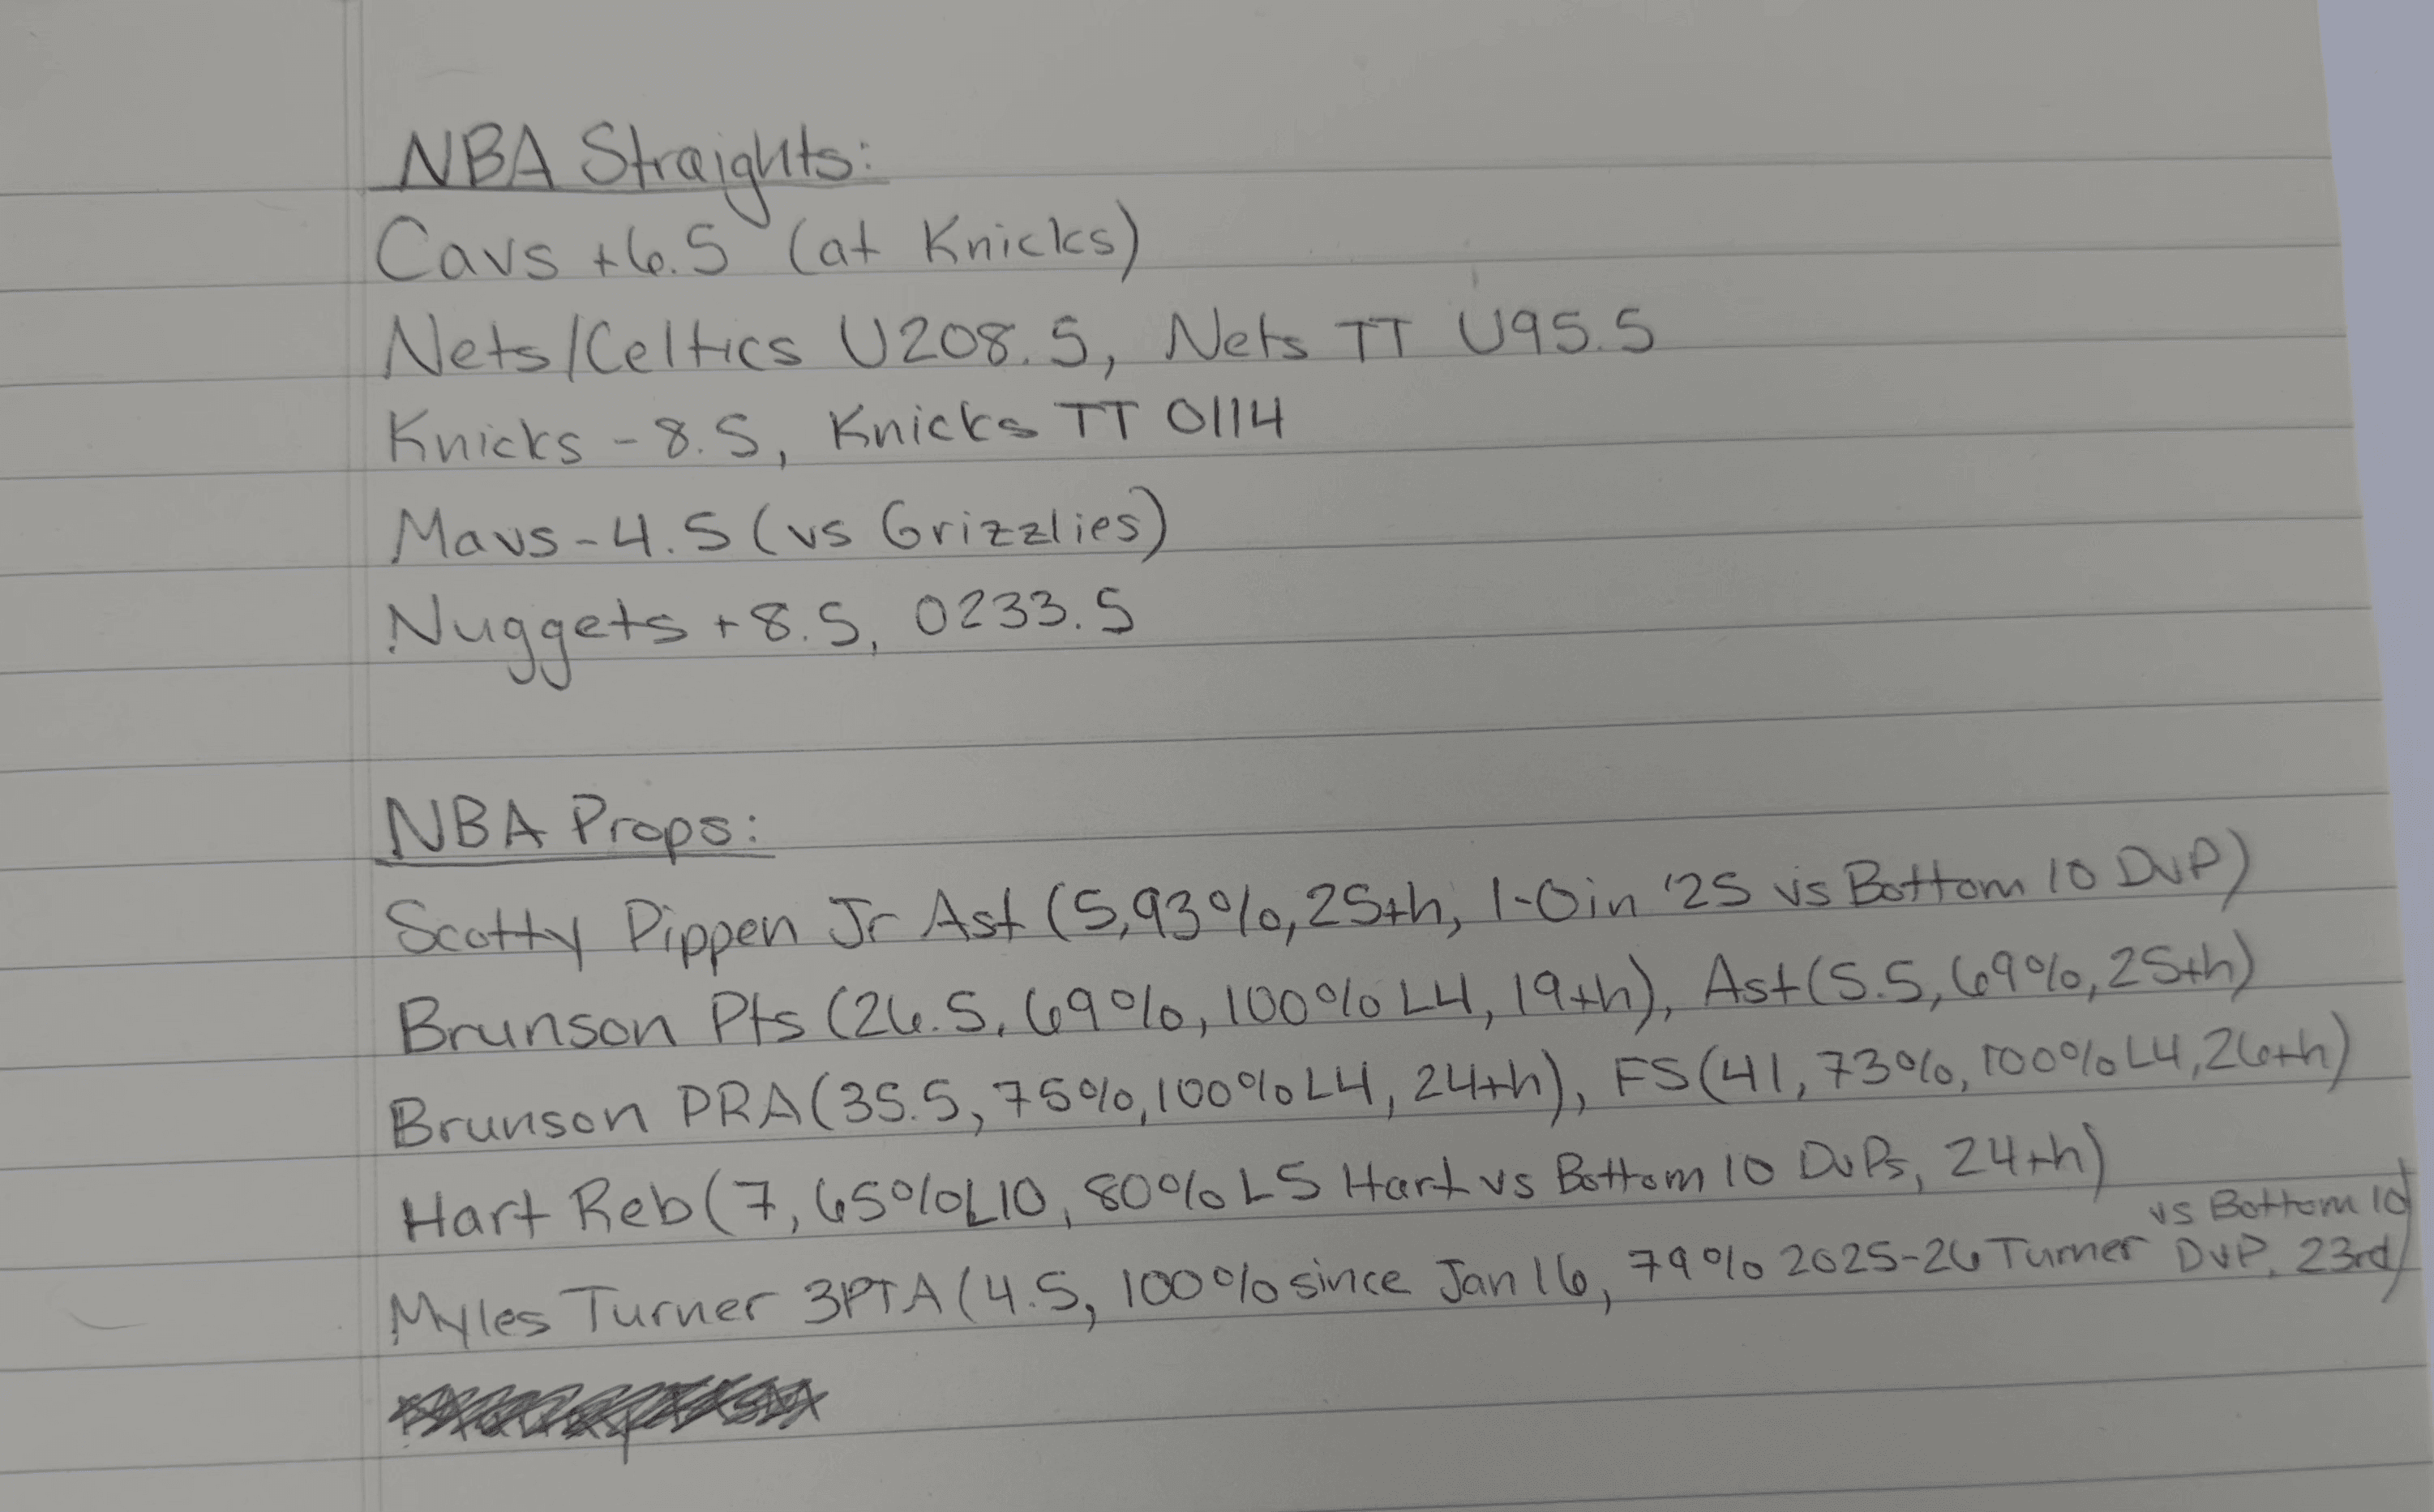 NBA Straights:
Cavs +6.5 (at Knicks)
Nets/Celtics U208.5, Nets TT U95.5
Knicks -8.5, Knicks TT O114
Mavs -4.5 (vs Grizzlies)
Nuggets +8.5, O233.5
NBA Props:
Scotty Pippen Jr Ast (5, 93%, 25th, 1-0 in '25 vs Bottom 10 DvP)
Brunson Pts (26.5, 69%, 100% L4, 19th), Ast (5.5, 69%, 25th)
Brunson PRA (35.5, 75%, 100% L4, 24th), FS (41, 73%, 100% L4, 26th)
Hart Reb (7, 65% L10, 80% L5 Hart vs Bottom 10 DvPs, 24th)
Myles Turner 3PTA (4.5, 100% since Jan 16, 79% 2025-26 Turner vs Bottom 10 DvP, 23rd)